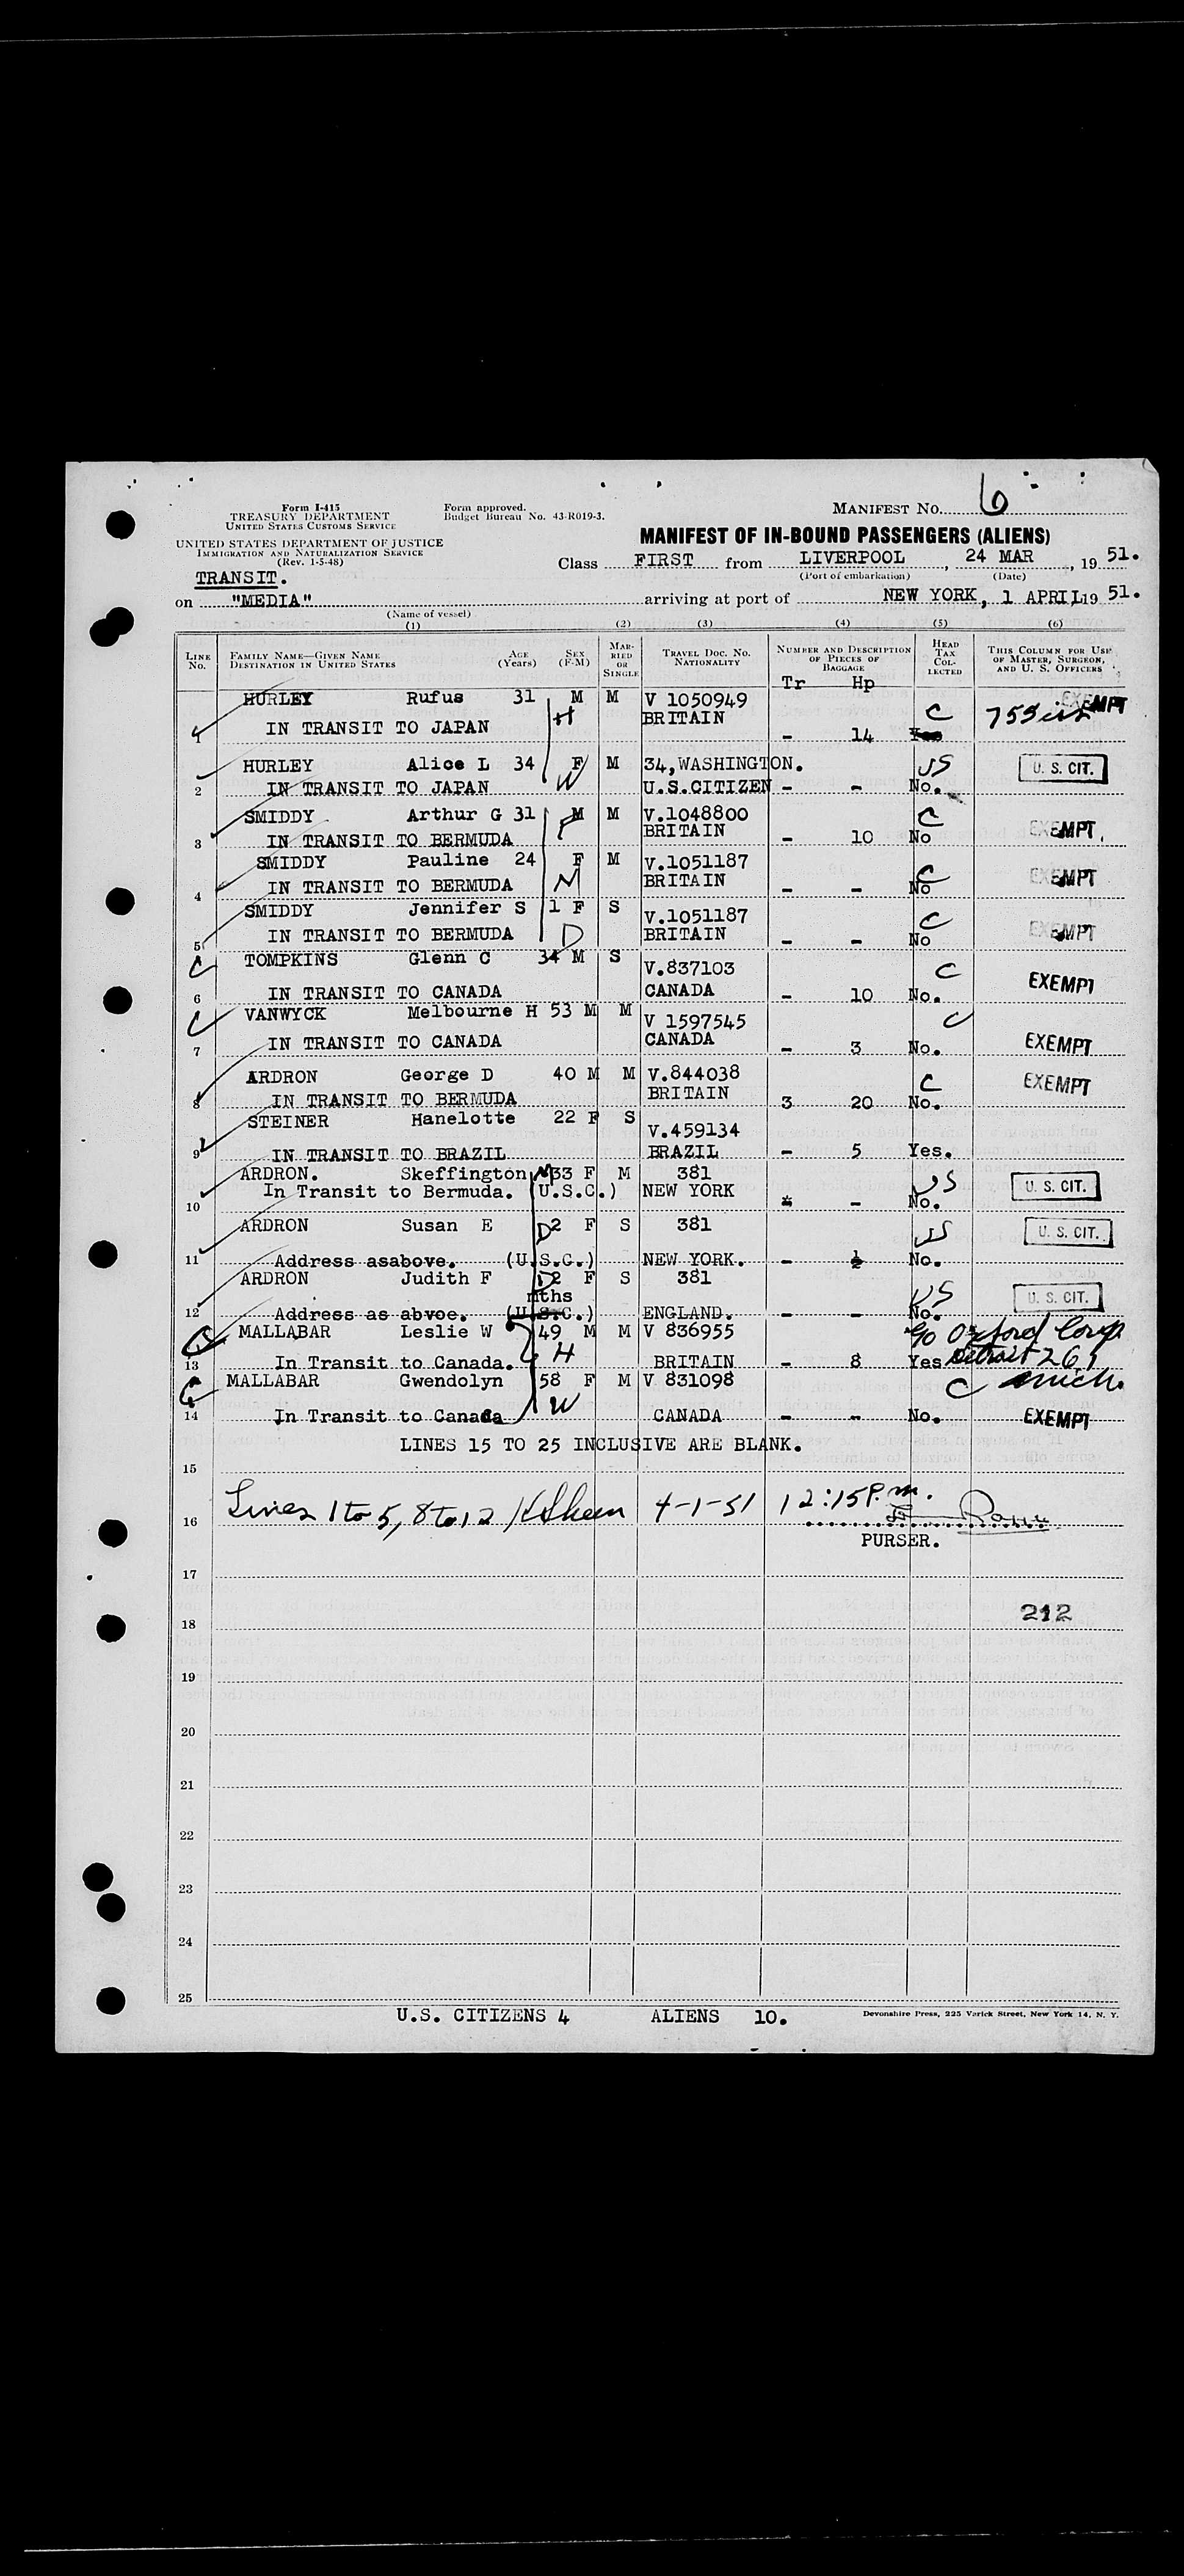 Form I-415
TREASURY DEPARTMENT
UNITED STATES CUSTOMS SERVICE
UNITED STATES DEPARTMENT OF JUSTICE
IMMIGRATION AND NATURALIZATION SERVICE
(Rev. 1-5-48)
Form approved.
Budget Bureau No. 43-R019-3.
MANIFEST NO. 6
MANIFEST OF IN-BOUND PASSENGERS (ALIENS)
Class FIRST from LIVERPOOL, 24 MAR, 19 51.
(Port of embarkation) (Date)
TRANSIT.
on "MEDIA" arriving at port of NEW YORK, 1 APRIL 19 51.
(Name of vessel)
(1) (2) (3) (4) (5) (6)
LINE No. FAMILY NAME—GIVEN NAME DESTINATION IN UNITED STATES AGE (Years) SEX (F-M) MARRIED OR SINGLE TRAVEL DOC. NO. NATIONALITY NUMBER AND DESCRIPTION OF PIECES OF BAGGAGE HEAD TAX COLLECTED THIS COLUMN FOR USE OF MASTER, SURGEON, AND U. S. OFFICERS
Tr Hp
HURLEY Rufus 31 M M V 1050949 C EXEMPT
1 IN TRANSIT TO JAPAN H BRITAIN - 14 Yes
HURLEY Alice L 34 F M 34,WASHINGTON. US U. S. CIT.
2 IN TRANSIT TO JAPAN W U.S.CITIZEN - - No.
SMIDDY Arthur G 31 M M V.1048800 C EXEMPT
3 IN TRANSIT TO BERMUDA F BRITAIN - 10 No
SMIDDY Pauline 24 F M V.1051187 C EXEMPT
4 IN TRANSIT TO BERMUDA M BRITAIN - - No
SMIDDY Jennifer S 1 F S V.1051187 C EXEMPT
5 IN TRANSIT TO BERMUDA D BRITAIN - - No
TOMPKINS Glenn C 34 M S V.837103 C EXEMPT
6 IN TRANSIT TO CANADA CANADA - 10 No.
VANWYCK Melbourne H 53 M M V 1597545 C EXEMPT
7 IN TRANSIT TO CANADA CANADA - 3 No.
ARDRON George D 40 M M V.844038 C EXEMPT
8 IN TRANSIT TO BERMUDA BRITAIN 3 20 No.
STEINER Hanelotte 22 F S V.459134
9 IN TRANSIT TO BRAZIL BRAZIL - 5 Yes.
ARDRON. Skeffington M 33 F M 381 US U. S. CIT.
10 In Transit to Bermuda. (U.S.C.) NEW YORK - No.
ARDRON Susan E D 2 F S 381 US U. S. CIT.
11 Address asabove. (U.S.C.) NEW YORK. - No.
ARDRON Judith F D 2 F S 381 US U. S. CIT.
mths
12 Address as abvoe. (U.S.C.) ENGLAND. - - No.
MALLABAR Leslie W 49 M M V 836955 c/o Oxford Corp
13 In Transit to Canada. H BRITAIN - 8 Yes Detroit 26,
MALLABAR Gwendolyn 58 F M V 831098 C Mich.
14 In Transit to Canada W CANADA - - No. EXEMPT
LINES 15 TO 25 INCLUSIVE ARE BLANK.
15
16 Lines 1 to 5, 8 to 12 4-1-51 12:15 P.m.
PURSER.
17
18 212
19
20
21
22
23
24
25
U.S. CITIZENS 4 ALIENS 10.
Devonshire Press, 225 Varick Street, New York 14, N. Y.